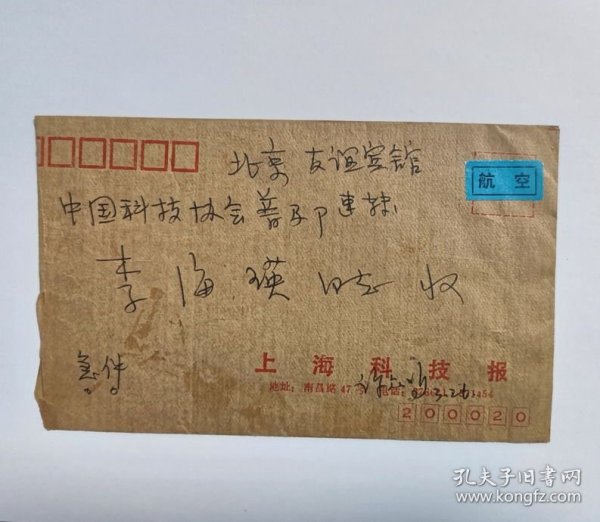 北京 友谊宾馆
航空
中国科技协会普及部
李海瑛 同志 收
急件
上海科技报
地址：南昌路47号 电话：
3.26
200020
孔夫子旧书网
www.kongfz.com